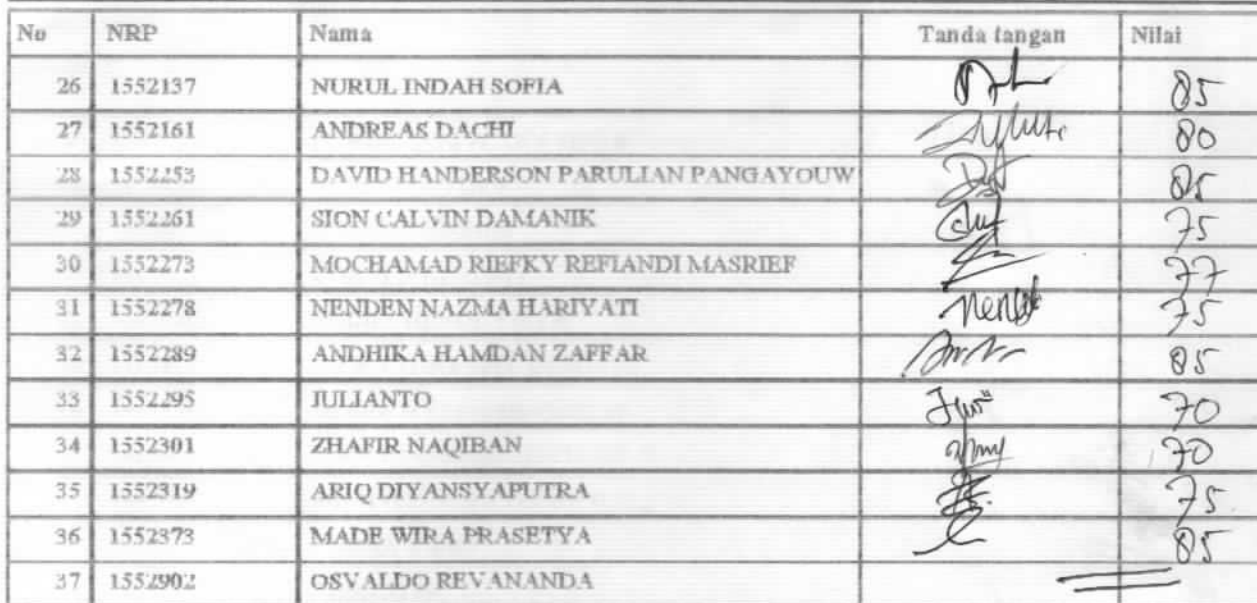 No NRP Nama Tanda tangan Nilai
26 1552137 NURUL INDAH SOFIA 85
27 1552161 ANDREAS DACHI 80
28 1552253 DAVID HANDERSON PARULIAN PANGAYOUW 85
29 1552261 SION CALVIN DAMANIK 75
30 1552273 MOCHAMAD RIEFKY REFIANDI MASRIEF 77
31 1552278 NENDEN NAZMA HARIYATI 75
32 1552289 ANDHIKA HAMDAN ZAFFAR 85
33 1552295 JULIANTO 70
34 1552301 ZHAFIR NAQIBAN 70
35 1552319 ARIQ DIYANSYAPUTRA 75
36 1552373 MADE WIRA PRASETYA 85
37 1552902 OSVALDO REVANANDA